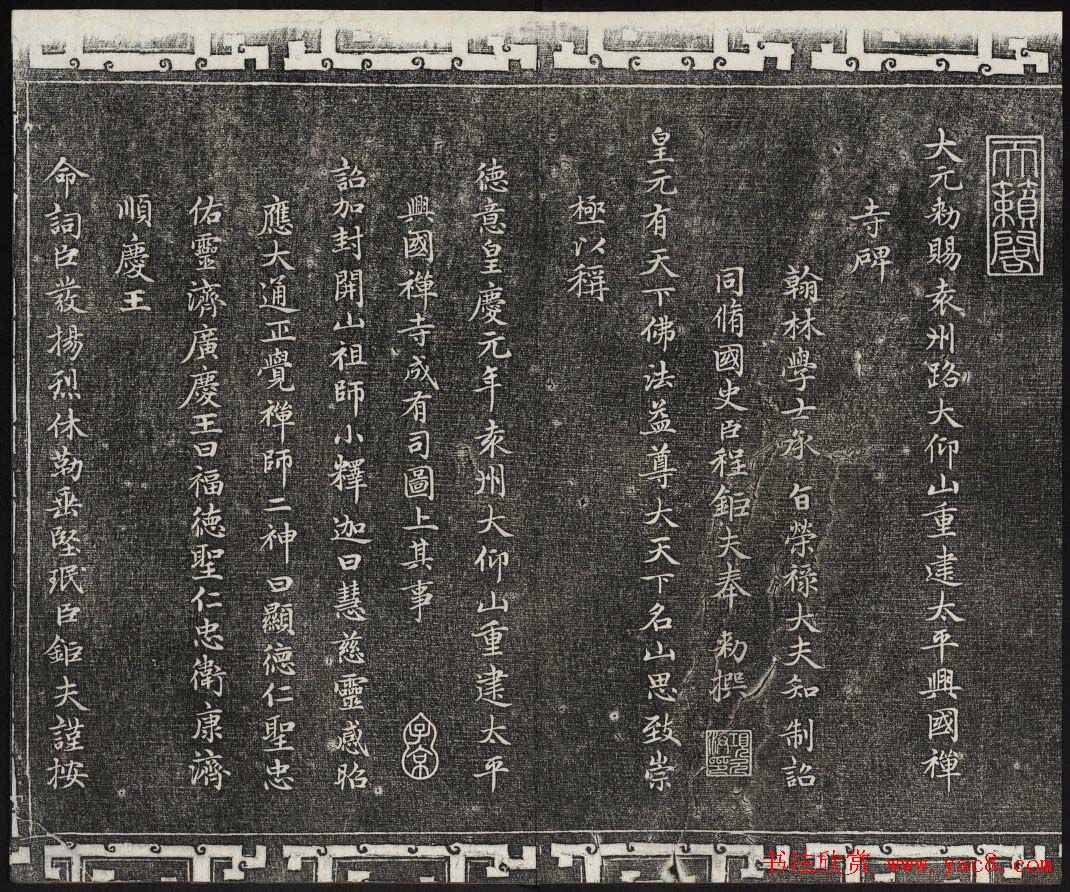 天籟閣
大元勑賜袁州路大仰山重建太平興國禪
寺碑
翰林學士承旨榮祿大夫知制詔
同脩國史臣程鉅夫奉勑撰
皇元有天下佛法益尊大天下名山思致崇
極以稱
德意皇慶元年袁州大仰山重建太平
興國禪寺成有司圖上其事
詔加封開山祖師小釋迦曰慧慈靈感昭
應大通正覺禪師二神曰顯德仁聖忠
佑靈濟廣慶王曰福德聖仁忠衛康濟
順慶王
命詞臣發揚烈休勒垂堅珉臣鉅夫謹按
子京
书法欣赏 www.yac8.com